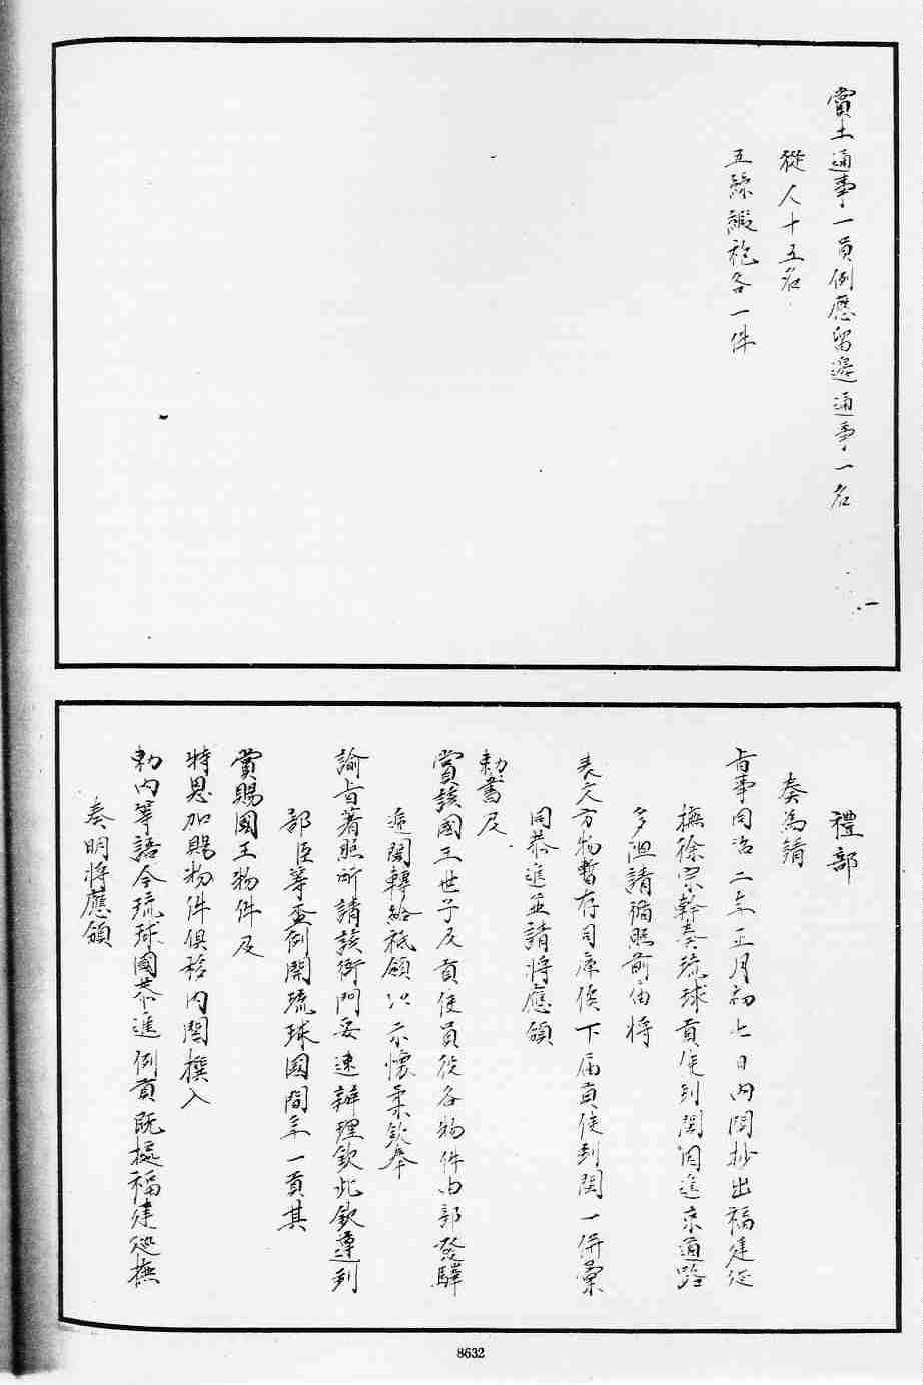 賞土通事一員例應留邊通事一名
從人十五名
五絲緞袍各一件
禮部
奏爲請
旨事同治二年正月初七日內閣抄出福建巡
撫徐宗幹奏琉球貢使到閩因進京道路
多阻請循照前屆將
表文方物暫存司庫俟下屆貢使到閩一併彙
同恭進並請將應頒
敕書及
賞該國王世子及貢使員役各物件由部發驛
遞閩轉給祗領以示懷柔欽奉
諭旨著照所請該衙門妥速辦理欽此欽遵到
部臣等查例開琉球國間年一貢其
賞賜國王物件及
特恩加賜物件俱移內閣撰入
勅內等語今琉球國恭進例貢既據福建巡撫
奏明將應頒
8632